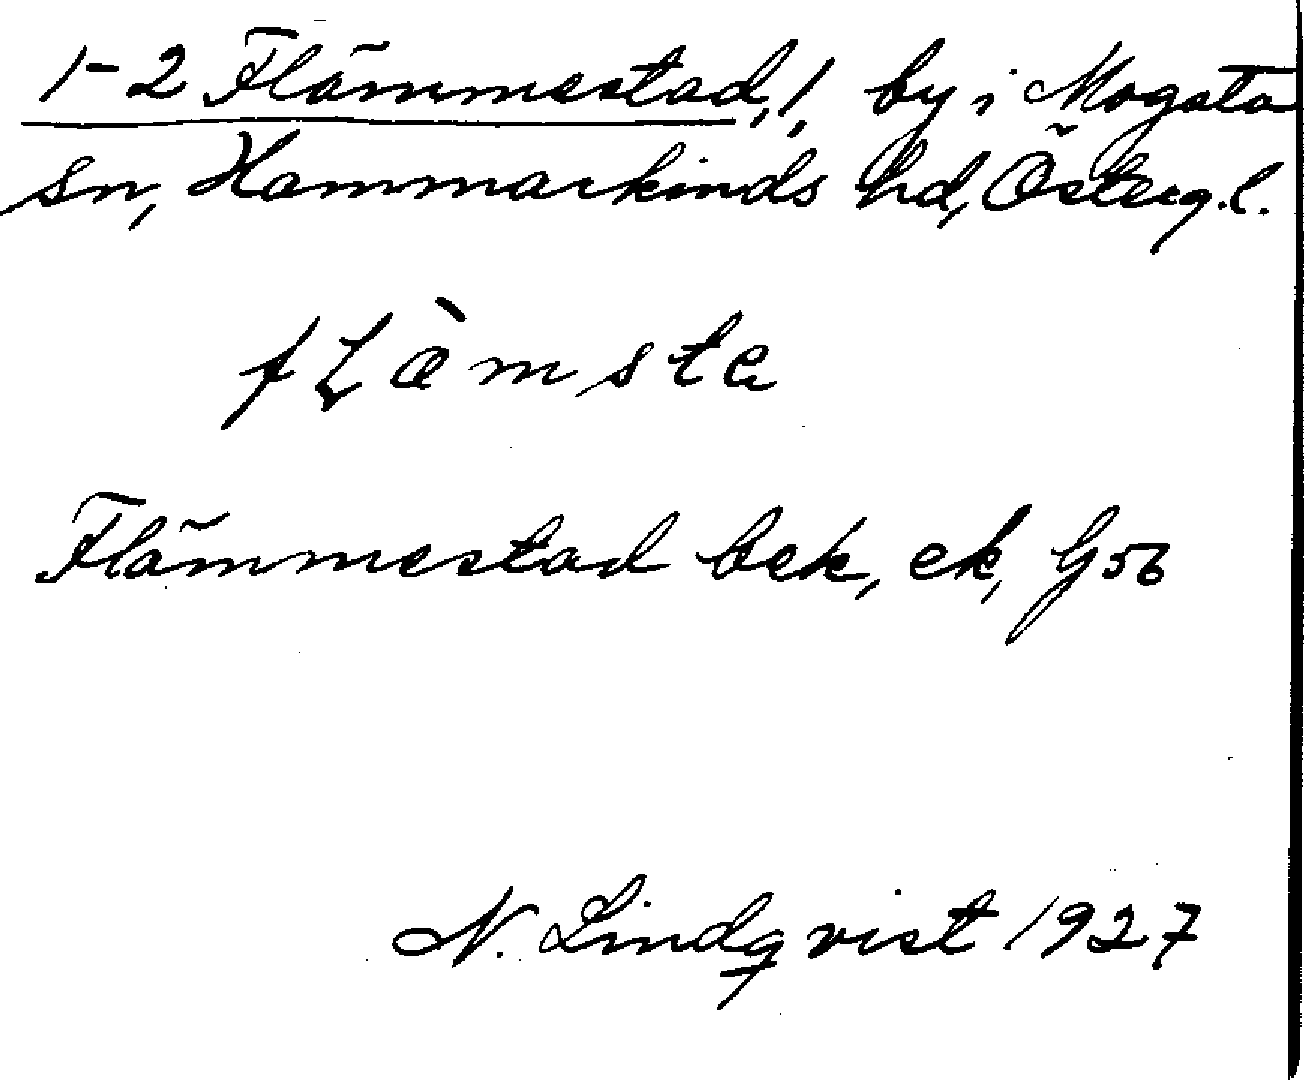 1-2 Flämmestad, 1, by i Mogata
sn, Hammarkinds hd, Österg.l.
flæ̀msta
Flämmestad bek, ek, G56
N. Lindqvist 1927